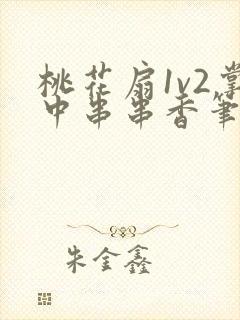 桃花扇1v2掌
中串串香笔
朱金鑫